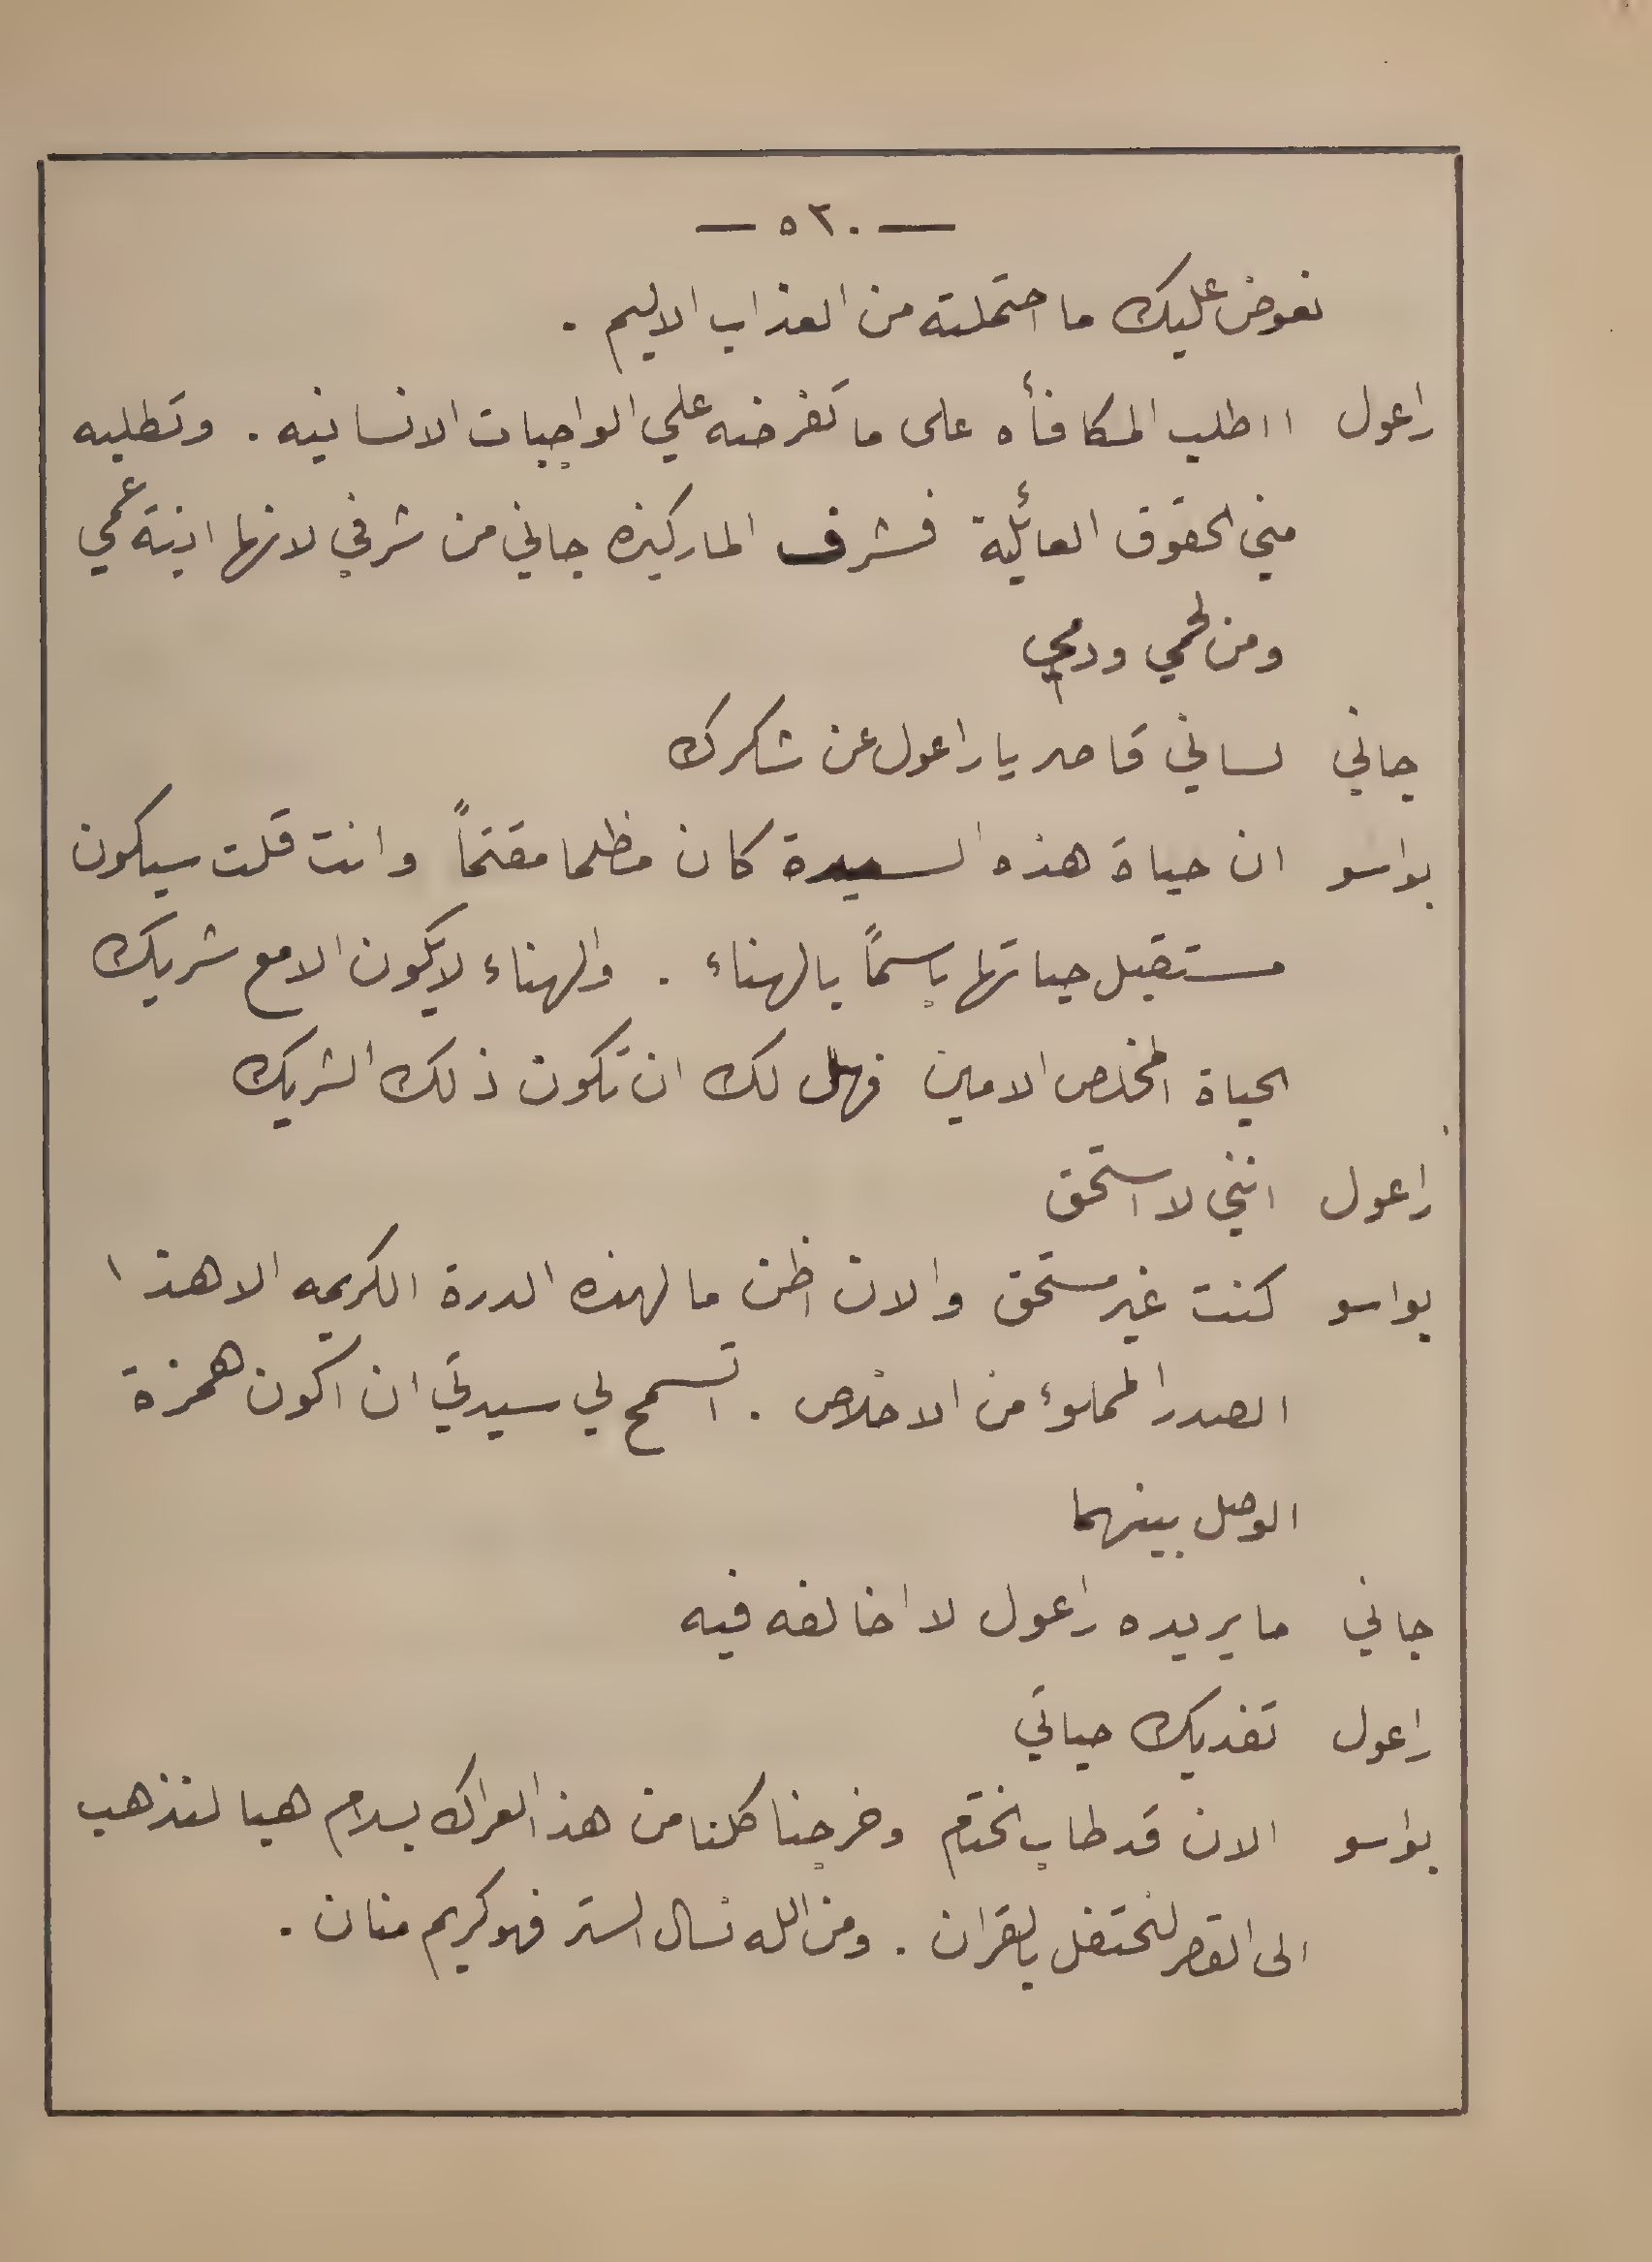 — ٥٢٠ —
نعوض عليك ما احتملته من العذاب الاليم .
راعول ااطلب المكافأه على ما تفرضه علي الواجبات الانسانيه . وتطلبه
مني الحقوق العائلية فشرف الماركيزه جاني من شرفي لانها ابنة عمي
ومن لحمي ودمي
جاني لساني قاصر يا راعول عن شكرك
بواسو ان حياة هذه السيدة كان مظلما مقتماً وانت قلت سيكون
مستقبل حياتها باسماً بالهناء . والهناء لا يكون الا مع شريك
الحياة المخلص الامين فهل لك ان تكون ذلك الشريك
راعول انني لا استحق
بواسو كنت غير مستحق والان اظن ما لهذه الدرة الكريمه الا هذا
الصدر المملوء من الاخلاص . اتسمح لي سيدتي ان اكون همزة
الوصل بينهما
جاني ما يريده راعول لا اخالفه فيه
راعول تفديك حياتي
بواسو الان قد طاب الختام وخرجنا كلنا من هذا العراك بسلام هيا لنذهب
الى القصر لنحتفل بالقران . ومن الله نسال الستر فهو كريم منان .